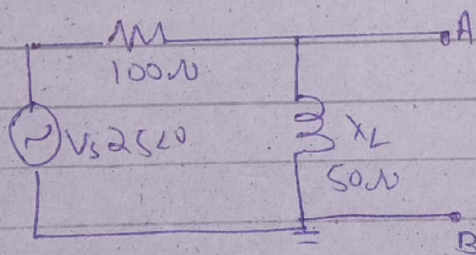 A
100Ω
Vs 25∠0
XL
50Ω
B